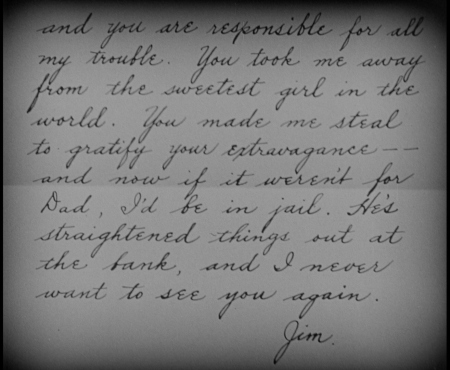 and you are responsible for all
my trouble. You took me away
from the sweetest girl in the
world. You made me steal
to gratify your extravagance --
and now if it weren't for
Dad, I'd be in jail. He's
straightened things out at
the bank, and I never
want to see you again.
Jim.